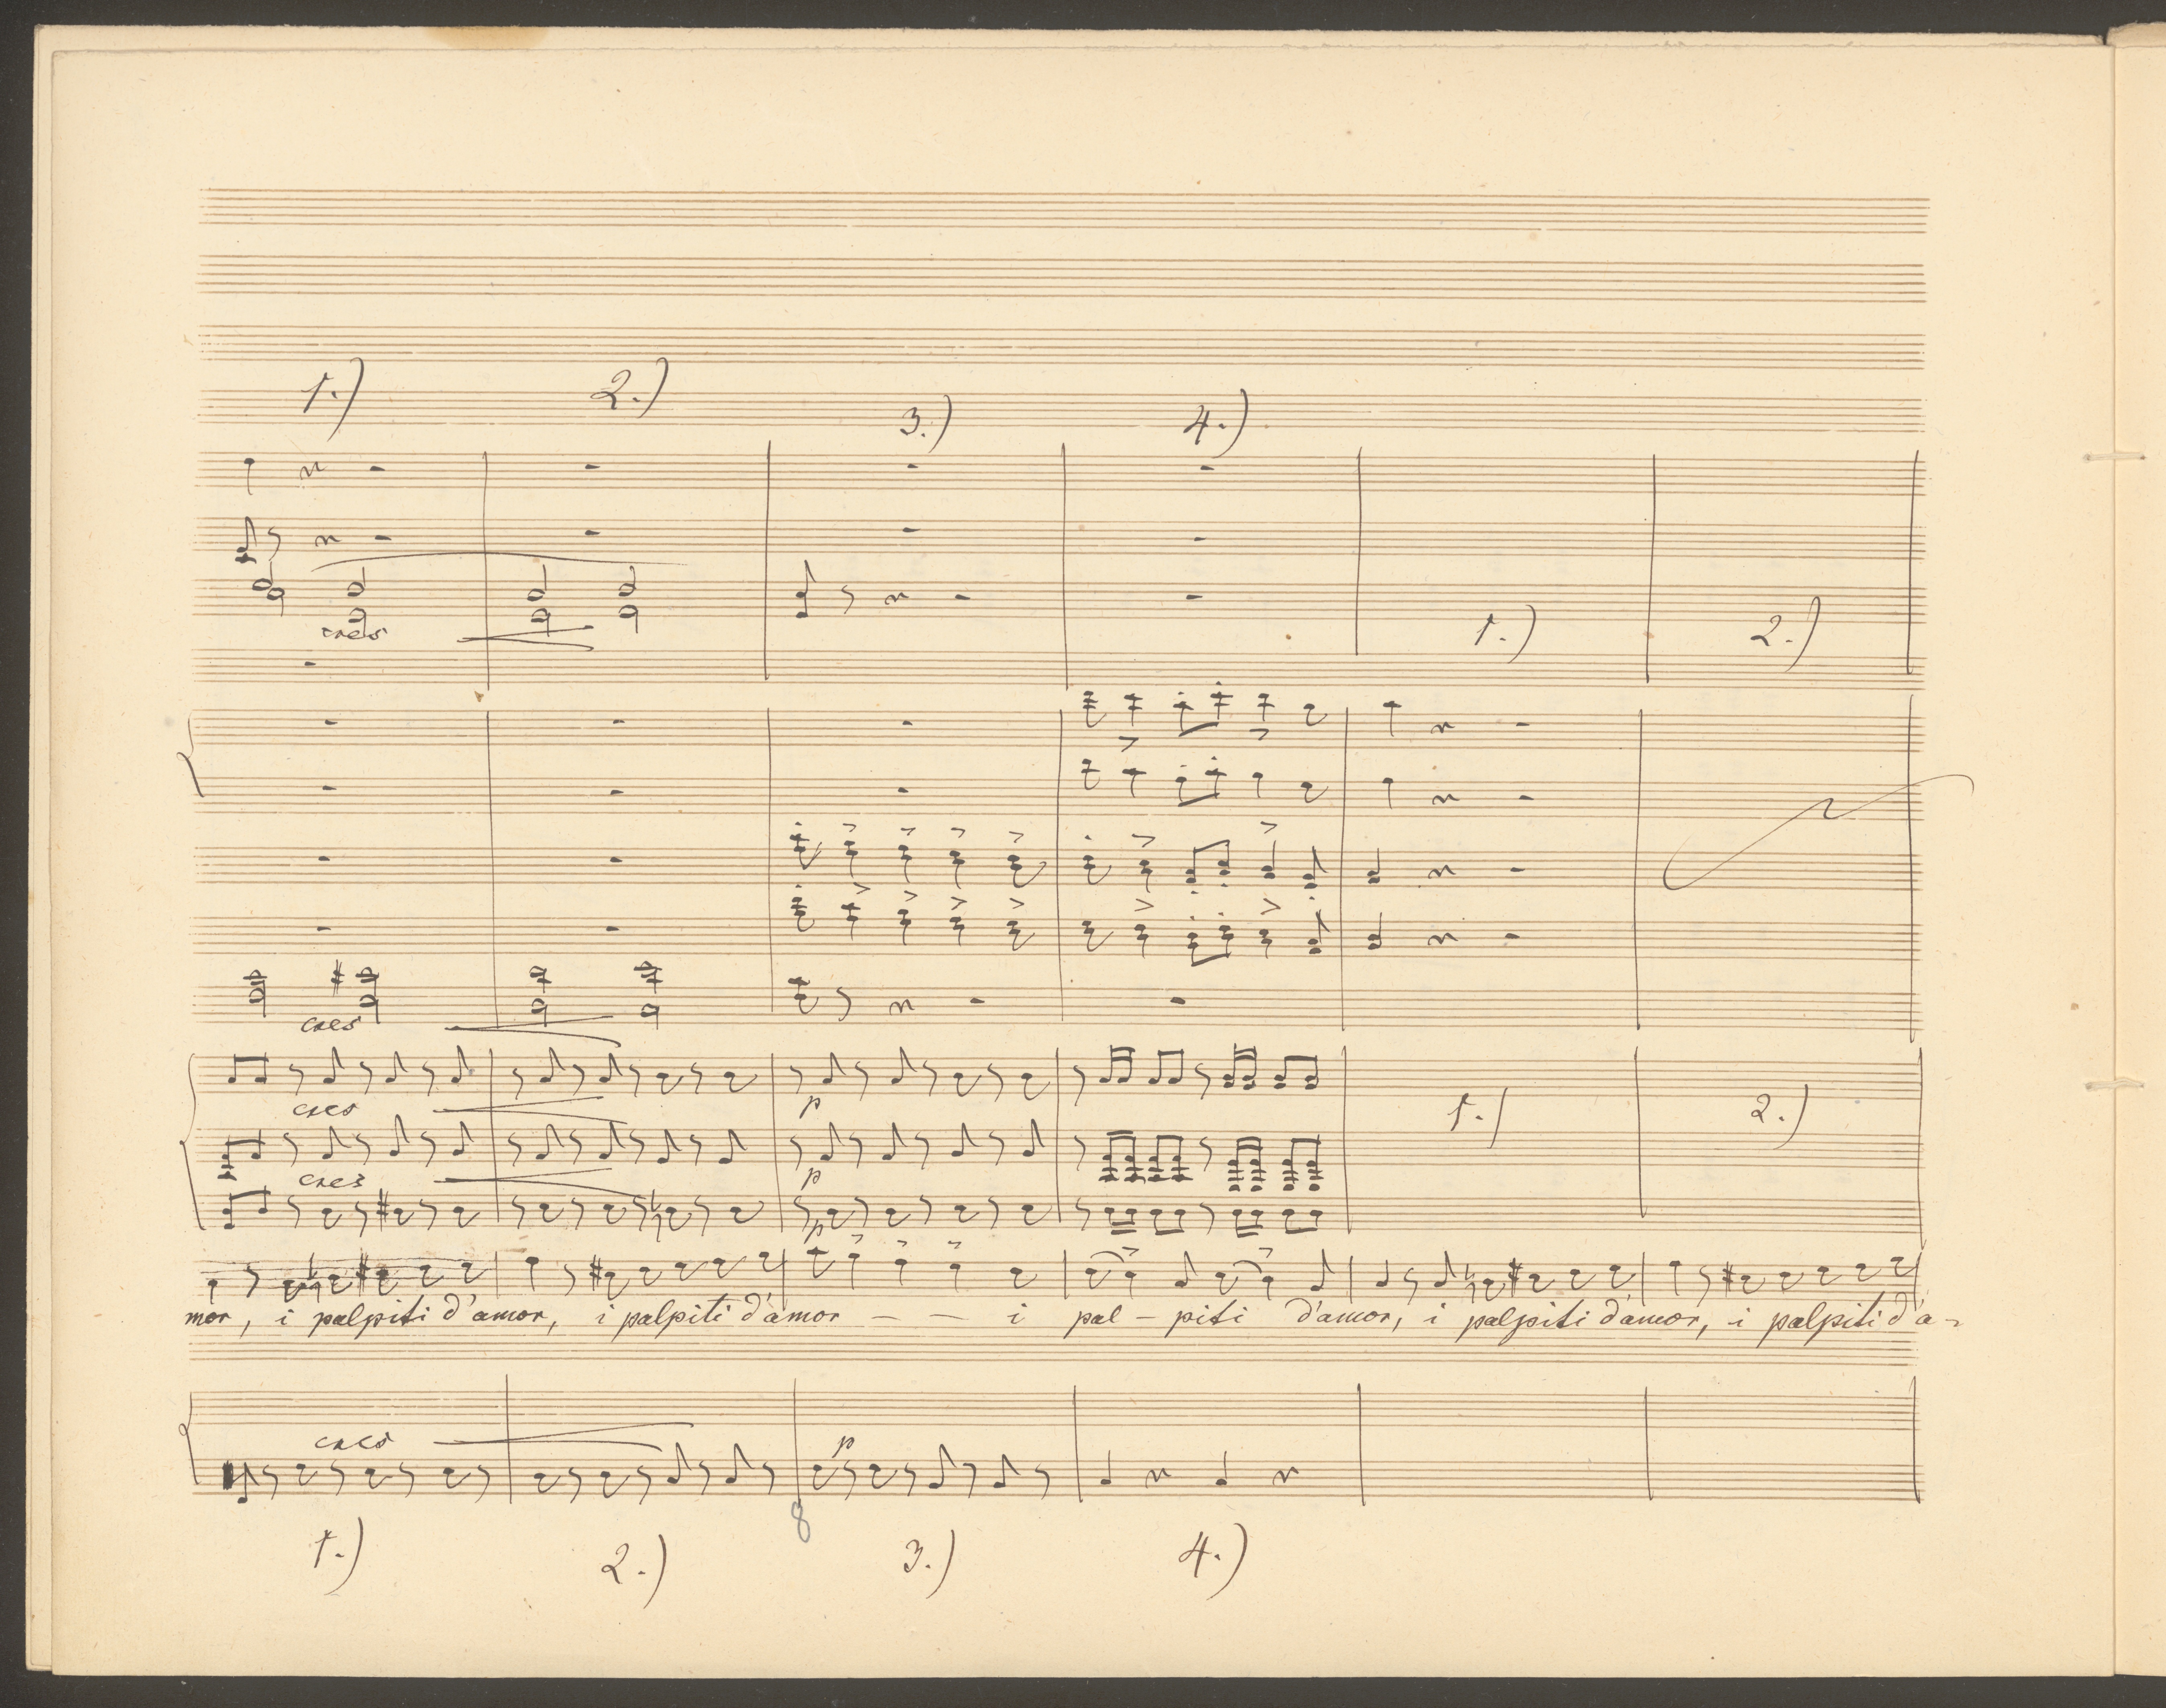 1.) 2.)
3.) 4.)
cres
1.) 2.)
cres
cres p
1.) 2.)
cres p
p
mor, i palpiti d'amor, i palpiti d'amor — — i pal - piti d'amor, i palpiti d'amor, i palpiti d'a-
cres p
8
1.) 2.) 3.) 4.)